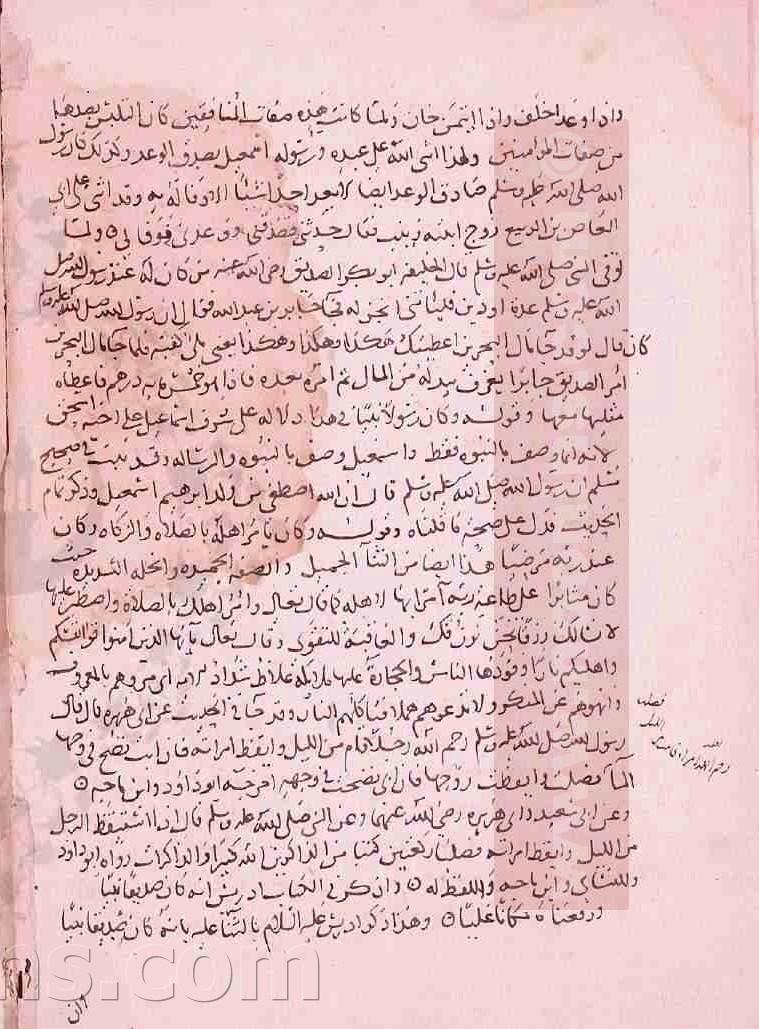 واذا وعد اخلف واذا ائتمن خان ولما كانت هذه صفات المنافقين كان التلبس بضدها
من صفات المؤمنين ولهذا اثنى الله على عبده ورسوله اسمعيل بصدق الوعد وكذلك كان رسول
الله صلى الله عليه وسلم صادق الوعد ايضا لا يعد احدا شيئا الا وفا له به وقد اثنى على ابي
العاص بن الربيع زوج ابنته زينب فقال حدثني فصدقني ووعدني فوفا لي ٥ ولما
توفي النبي صلى الله عليه وسلم قال الخليفه ابو بكر الصديق رضي الله عنه من كان له عند رسول الله صلى
الله عليه وسلم عدة او دين فلياتني انجز له فجا جابر بن عبد الله فقال ان رسول الله صلى الله عليه وسلم
كان قال لو قد جا مال البحرين اعطيتك هكذا وهكذا وهكذا يعني ملء كفيه فلما جا مال البحرين
امر الصديق جابرا يغرف بيده من المال ثم امره بعده فاذا هو خمس مايه درهم فاعطاه
مثليها معها وقوله وكان رسولا نبيا في هذا دلاله على شرف اسماعيل على اخيه اسحق
لانه انما وصف بالنبوه فقط واسمعيل وصف بالنبوه والرساله وقد ثبت في صحيح
مسلم ان رسول الله صلى الله عليه وسلم قال ان الله اصطفى من ولد ابرهيم اسمعيل وذكر تمام
الحديث فدل على صحة ما قلناه وقوله وكان يامر اهله بالصلاه والزكاه وكان
عند ربه مرضيا هذا ايضا من الثنا الجميل والصفه الحميده والخله السديده حيث
كان مثابرا على طاعة ربه آمرا بها لاهله كما قال تعالى وامر اهلك بالصلاة واصطبر عليها
لا نسالك رزقا نحن نرزقك والعاقبة للتقوى وقال تعالى يا ايها الذين امنوا قوا انفسكم
واهليكم نارا وقودها الناس والحجارة عليها ملايكة غلاظ شداد الايه اي مروهم بالمعروف
وانهوهم عن المنكر ولا تدعوهم هملا فتاكلهم النار وقد جا في الحديث عن ابي هريره قال قال
رسول الله صلى الله عليه وسلم رحم الله رجلا قام من الليل وايقظ امراته فان ابت نضح في وجهها
المآ فصلت وايقظت زوجها فان ابى نضحت في وجهه اخرجه ابو داود وابن ماجه ٥
وعن ابي سعيد وابي هريره رضي الله عنهما وعن النبي صلى الله عليه وسلم قال اذا استيقظ الرجل
من الليل وايقظ امراته فصليا ركعتين كتبا من الذاكرين الله كثيرا والذاكرات رواه ابو داود
والنسائي وابن ماجه واللفظ له ٥ واذكر في الكتاب ادريس انه كان صديقا نبيا
ورفعناه مكانا عليا ٥ وهذا ذكر ادريس عليه السلام بالثنا عليه بانه كان صديقا نبيا
وان
ns.com